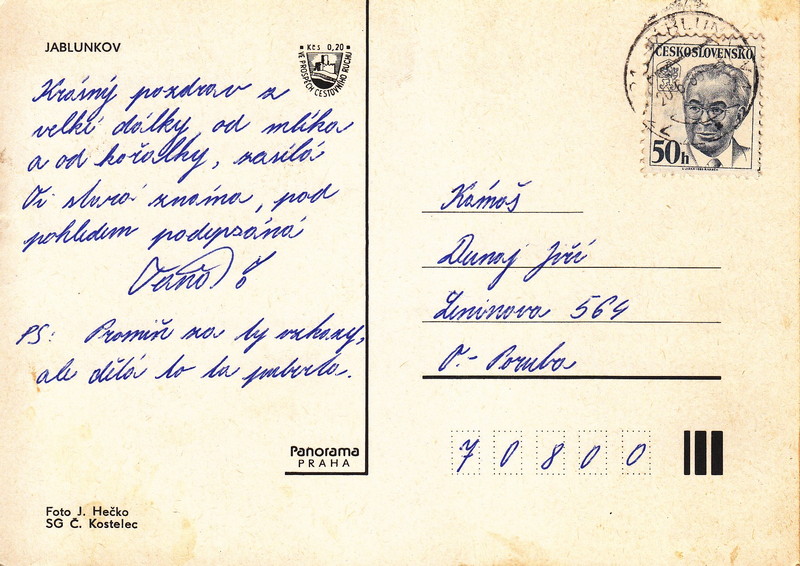 JABLUNKOV
Kčs 0,20
VE PROSPĚCH CESTOVNÍHO RUCHU
Krásný pozdrav z
velké dálky, od mlíka
a od kořalky, zasílá
Ti stará známa, pod
pohledem podepsáná
PS: Promiň za ty vzkazy,
ale dělá to ta puberta.
Panorama
PRAHA
Foto J. Hečko
SG Č. Kostelec
ČESKOSLOVENSKO
50h
Kámoš
Dunaj Jiří
Leninova 564
O.-Poruba
70800